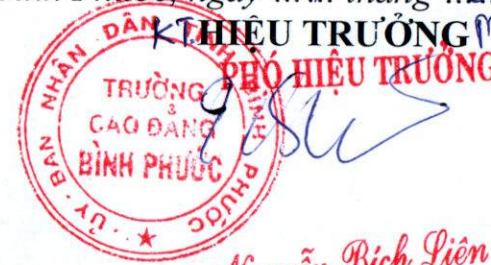 ngày tháng
KT.HIỆU TRƯỞNG
PHÓ HIỆU TRƯỞNG
ỦY BAN NHÂN DÂN TỈNH BÌNH PHƯỚC
TRƯỜNG
CAO ĐẲNG
BÌNH PHƯỚC
Nguyễn Bích Liên